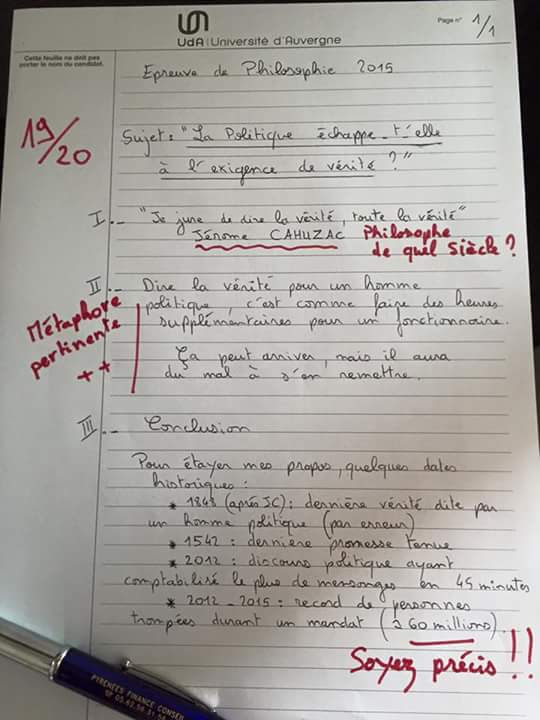 UdA | Université d'Auvergne
Page n° 1/1
Cette feuille ne doit pas
porter le nom du candidat.
Epreuve de Philosophie 2015
19/20
Sujet : "La Politique échappe-t'elle
à l'exigence de vérité ?"
I._ "Je jure de dire la vérité, toute la vérité"
Jérome CAHUZAC Philosophe
de quel Siècle ?
II._ Dire la vérité pour un homme
politique, c'est comme faire des heures
supplémentaires pour un fonctionnaire.
Métaphore
pertinente
++
Ça peut arriver, mais il aura
du mal à s'en remettre.
III._ Conclusion
Pour étayer mes propos, quelques dates
historiques :
* 1843 (après JC) : dernière vérité dite par
un homme politique (par erreur)
* 1542 : dernière promesse tenue
* 2012 : discours politique ayant
comptabilisé le plus de mensonges en 45 minutes
* 2012_2015 : record de personnes
trompées durant un mandat (≥ 60 millions).
Soyez précis !!
PYRÉNÉES FINANCE CONSEIL